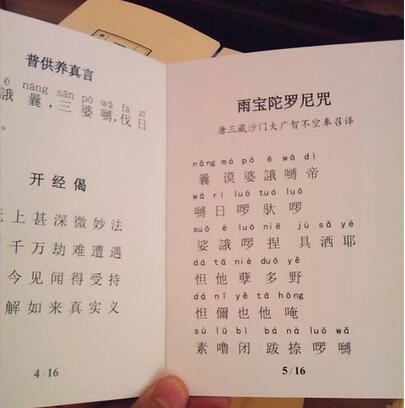 普供养真言
ē nāng sān pō wā fá zì
誐曩，三婆嚩，伐日
。
开经偈
上甚深微妙法
千万劫难遭遇
今见闻得受持
解如来真实义
4/16
雨宝陀罗尼咒
唐三藏沙门大广智不空奉召译
nāng mó pó ē wā dì
曩谟婆誐嚩帝
wā rì luō tuó luō
嚩日啰驮啰
suō ē luō niē jù sǎ yē
娑誐啰捏具洒耶
dá tā niè duō yě
怛他孽多野
dá nǐ yě tā hōng
怛儞也他唵
sù lū bì bá nà luō wā
素噜闭跋捺啰嚩
5/16